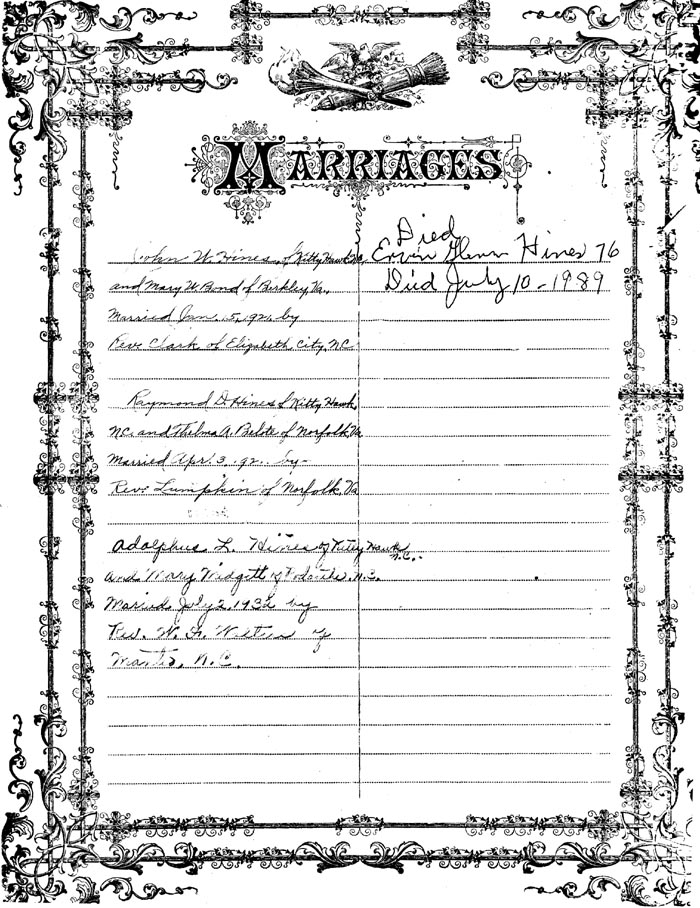 MARRIAGES
John W. Hines, of Kitty Hawk
and Mary W. Bond of Berkley, Va.
Married Jan. 5, by
Rev. Clark of Elizabeth City, NC
Raymond D. Hines of Kitty Hawk,
NC. and Thelma A. Belote of Norfolk, Va
Married Apr. 3 by
Rev. Lumpkin of Norfolk, Va
Adolphus L. Hines of Kitty Hawk
N.C.
and Mary Midgett of N.C.
Married July 2, 1932 by
Rev. W. of
N.C.
Died
Ervin Glenn Hines 76
Died July 10 - 1989